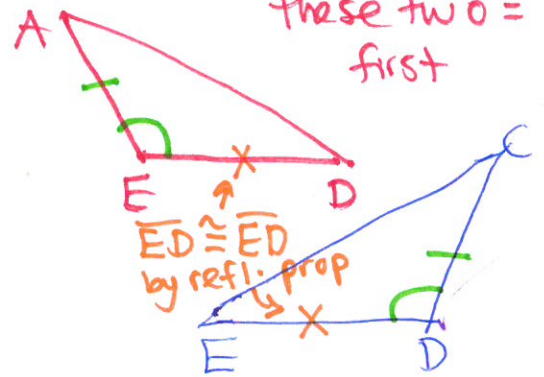 these two =
first
A
E
D
C
E̅D̅ ≅ E̅D̅
by refl. prop
E
D